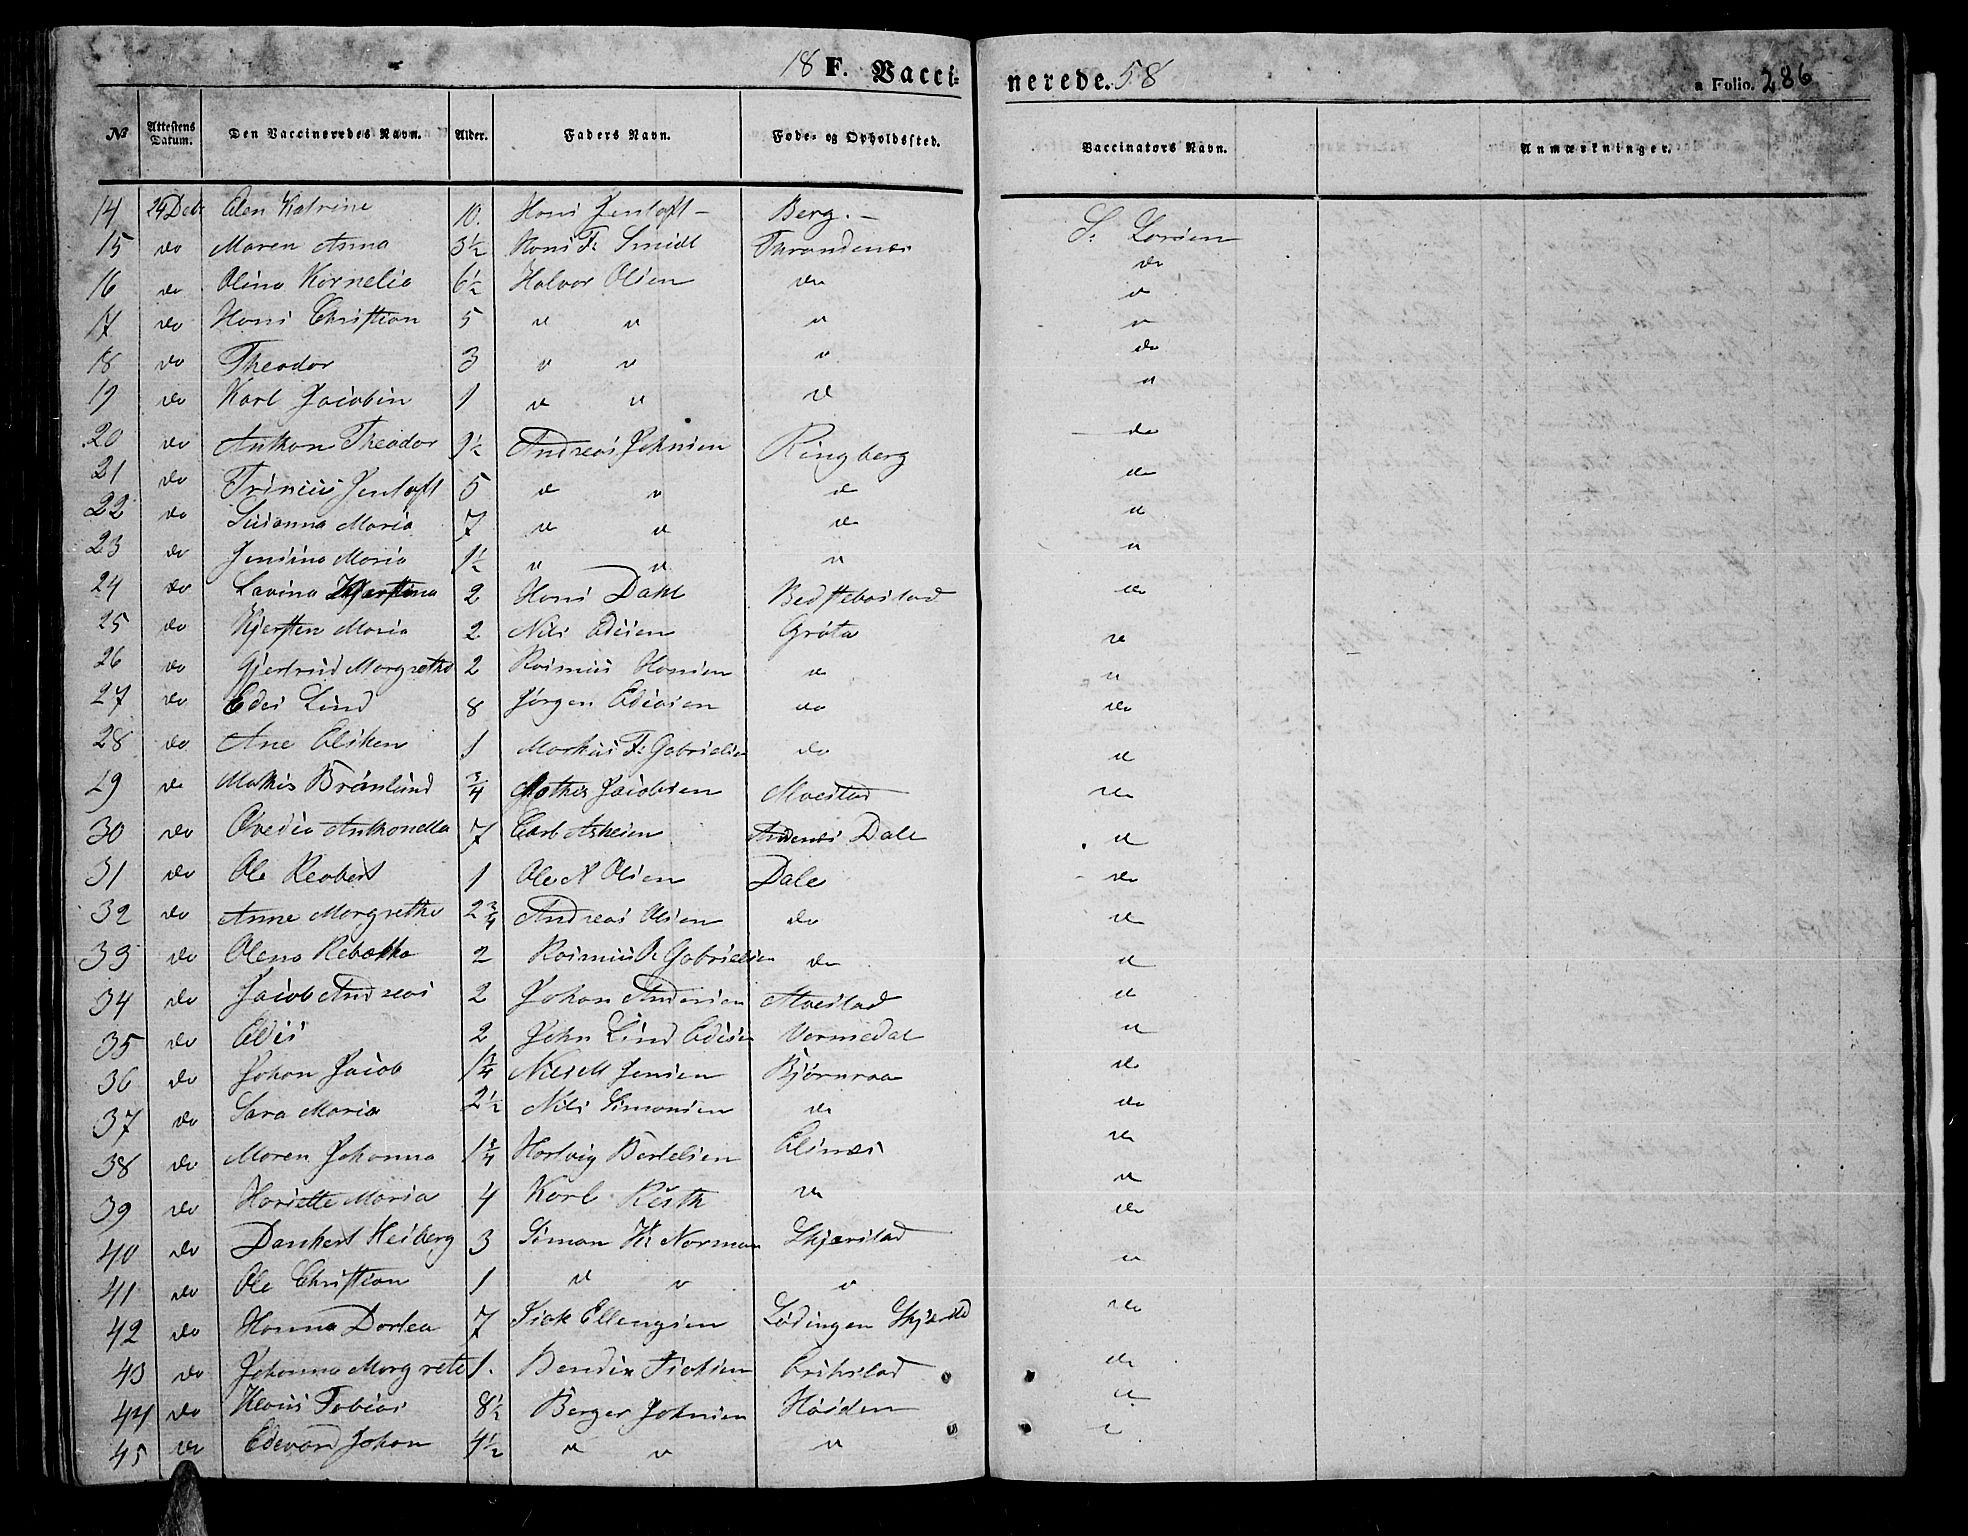 18 F. Vacci= nerede. 58
a Folio. 286
№ Attestens Datum. Den Vaccineredes Navn. Alder. Faders Navn. Føde- og Opholdssted. Vaccinators Navn. Anmærkninger.
14 24 Debr Elen Katrine 10. Hans Jentoft - Berg. - S. Larsen
15 do Maren Anna 3½ Hans F: Smidt Throndenæs do
16 do Olina Kornelia 6½ Halvor Olsen do "
17 do Hans Christian 5 " " " "
18 do Theodor 3 " " " do
19 do Karl Jacobin 1 " " " "
20 do Anthon Theodor 9½ Andreas Johnsen Ringberg do
21 do Trinius Jentoft 5 " " " do
22 do Susanna Maria 7 " " do "
23 do Jensina Maria 1½ " " " "
24 do Lavina 2 Hans Dahl Bedstebostad do
25 do Kjersten Maria 2 Nils Edisen Grøta "
26 do Gjertrud Margrethe 2 Rasmus Hansen do "
27 do Edis Lind 8 Jørgen Edisen do do
28 do Ane Elsken 1 Markus F: Gabrielsen do "
29 do Mathis Brønlund ¾ Mathis Jacobsen Alvestad do
30 do Ovedia Anthonetta 7 Carl Dale "
31 do Ole Reobert 1 Ole A Olsen Dale do
32 do Anne Margrethe 2¾ Andreas Olsen do "
33 do Olena Rebekka 2 Rasmus R Gabrielsen do "
34 do Jacob Andreas 2 Johan Andersen Alvestad "
35 do Edis 2 John Lind Edisen Vormedal "
36 do Johan Jacob 1¾ Nils M Jensen Bjørnraa do
37 do Sara Maria 2½ Nils Simonsen do do
38 do Maren Johanna 1¾ Hartvig Bertelsen Elsnæs do
39 do Hariette Maria 4 Karl Rust do "
40 do Dankert Heiberg 3 Simon K: Norman Skjærstad do
41 do Ole Christian 1 " " " "
42 do Hanna Dortea 7 Isak Ellengsen Lødingen Skjærstd do
43 do Johanna Margrete 1. Bendix Isaksen Erikstad do
44 do Klaus Tobias 8½ Berger Johnsen "
45 do Edevard Johan 4½ " " " "